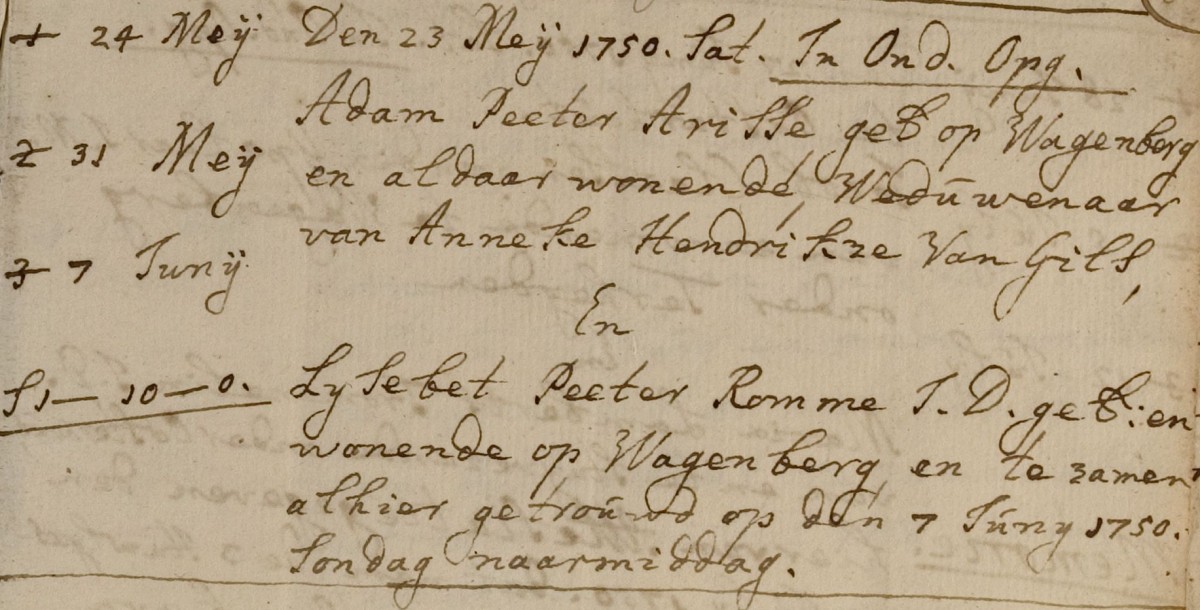 1 24 Meÿ Den 23 Meÿ 1750. Sat. In Ond. Opg.
Adam Peeter Arisse geb op Wagenberg
2 31 Meÿ en aldaar wonende, Weduwenaar
van Anneke Hendrikze Van Gils,
3 7 Junÿ
En
f1—10—0. Lysebet Peeter Romme J.D. geb: en
wonende op Wagenberg, en te zamen
alhier getrouwd op den 7 Juny 1750.
Sondag naarmiddag.